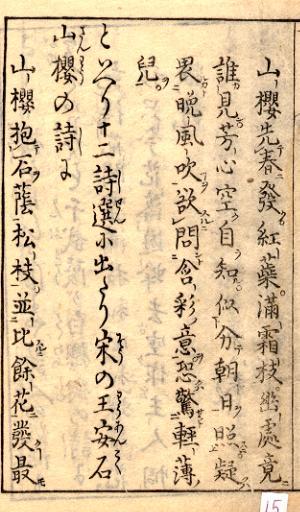 山櫻先春發紅蘂滿霜枝幽處竟
誰見芳心空自知似分朝日照疑
畏晚風吹欲問含彩意恐驚輕薄
兒
といへり十二詩選に出たり宋の王安石
山櫻の詩に
山櫻抱石蔭松枝並比餘花發最
15